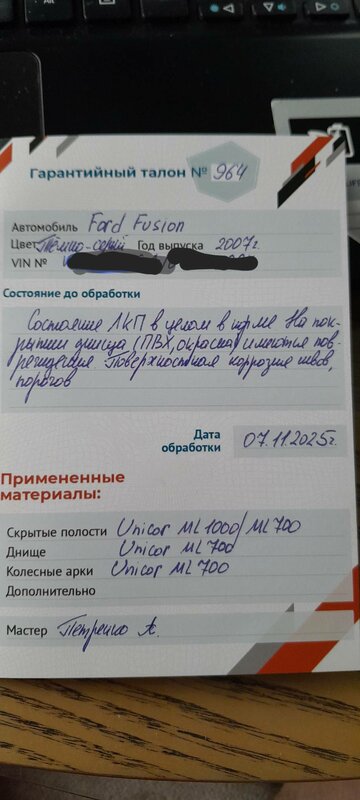 Гарантийный талон № 964
Автомобиль Ford Fusion
Цвет Темно-серый Год выпуска 2007г.
VIN №
Состояние до обработки
Состояние ЛКП в целом в норме На пок-
рытии днища (ПВХ, окраска) имеются пов-
реждения Поверхностная коррозия швов,
порогов
Дата
обработки 07.11.2025г.
Примененные
материалы:
Скрытые полости Unicor ML 1000/ML 700
Днище Unicor ML 700
Колесные арки Unicor ML 700
Дополнительно
Мастер Петренко А.